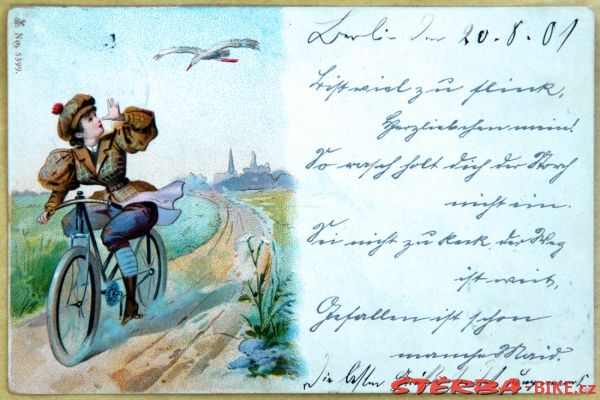 No. 5399.
Berlin den 20.8.01
Bist viel zu flink,
Herzliebchen mein!
So rasch holt dich der Storch
nicht ein.
Sei nicht zu keck der Weg
ist weit,
Gefallen ist schon
manche Maid.
Die besten
STERBA-BIKE.cz